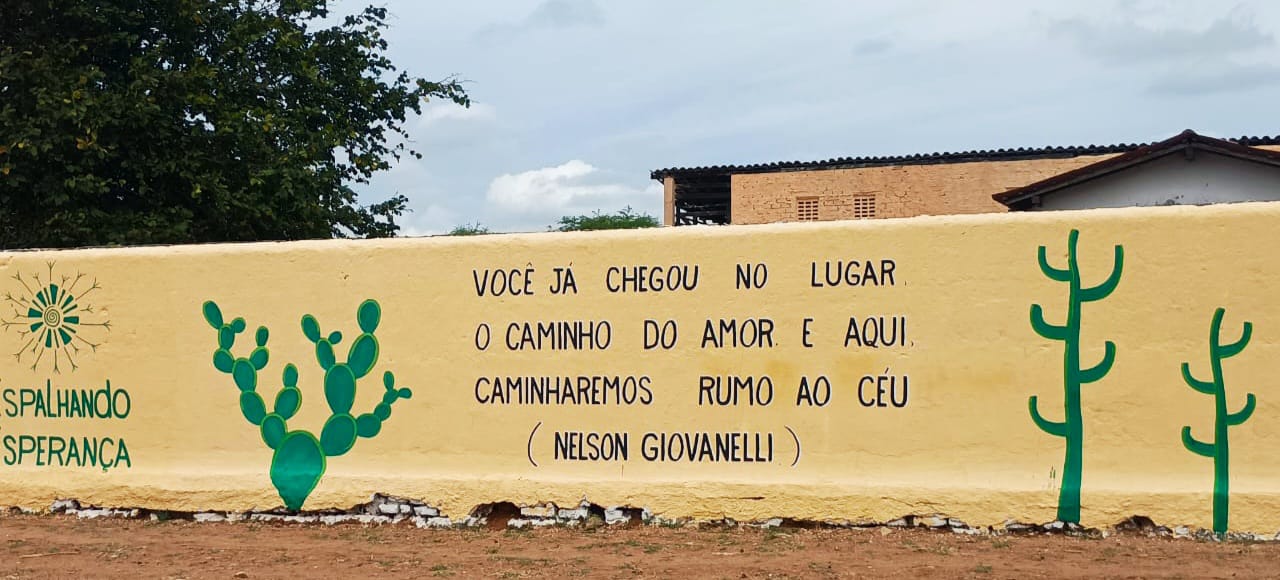 VOCÊ JÁ CHEGOU NO LUGAR.
O CAMINHO DO AMOR. E AQUI.
CAMINHAREMOS RUMO AO CÉU
(NELSON GIOVANELLI)
ESPALHANDO
ESPERANÇA